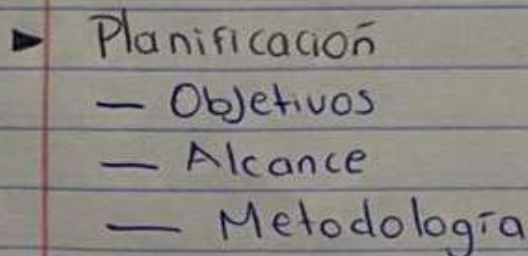 ► Planificación
— Objetivos
— Alcance
— Metodología